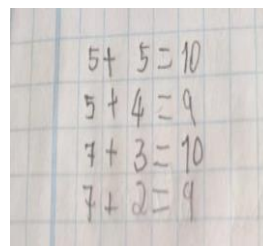 5 + 5 = 10
5 + 4 = 9
7 + 3 = 10
7 + 2 = 9